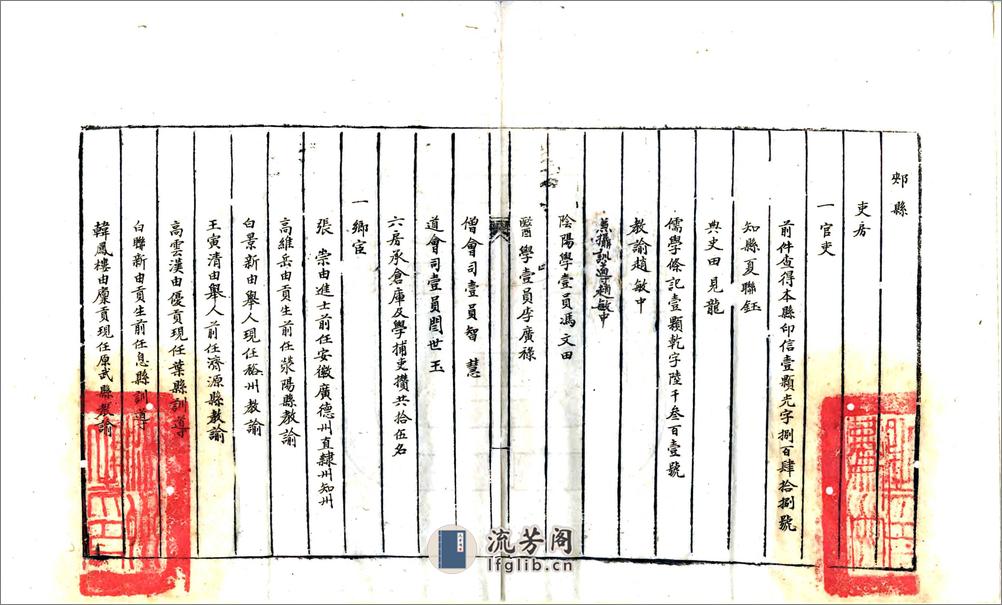 郟縣
吏房
一官吏
前件查得本縣印信壹顆光字捌百肆拾捌號
知縣夏聯鈺
典史田見龍
儒學條記壹顆乾字陸千叁百壹號
教諭趙敏中
兼攝訓導趙敏中
陰陽學壹員馮文田
醫學壹員李廣祿
一
僧會司壹員智慧
道會司壹員閻世玉
六房承倉庫及學捕吏攢共拾伍名
一鄉宦
張崇由進士前任安徽廣德州直隸州知州
高維岳由貢生前任滎陽縣教諭
白景新由舉人現任裕州教諭
王寅清由舉人前任濟源縣教諭
高雲漢由優貢現任葉縣訓導
白聯新由貢生前任息縣訓導
韓鳳樓由廩貢現任原武縣教諭
流芳阁
lfglib.cn